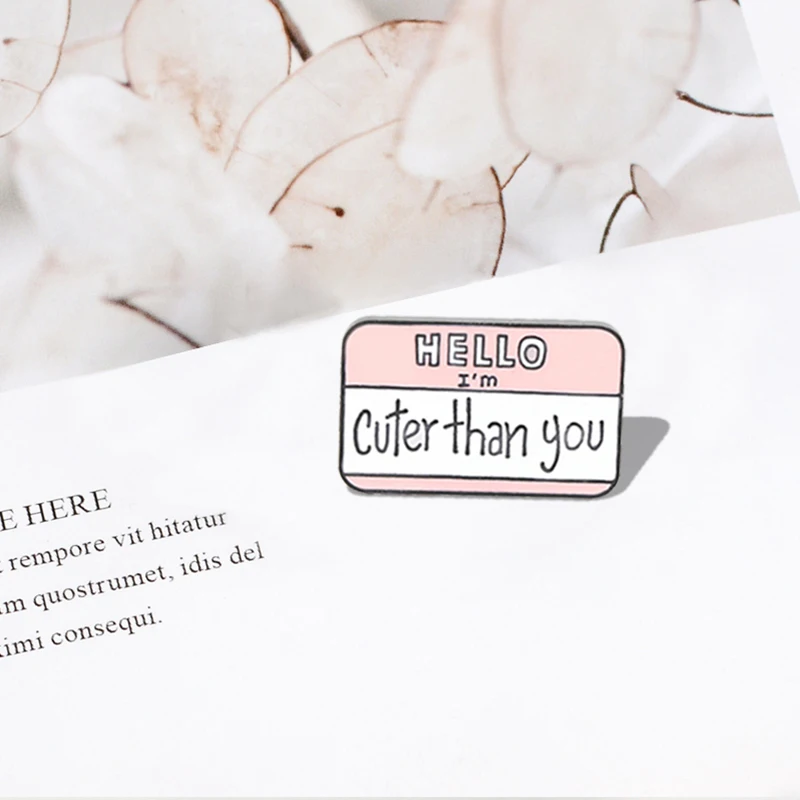 HELLO
I'm
cuter than you
E HERE
rempore vit hitatur
m quostrumet, idis del
imi consequi.